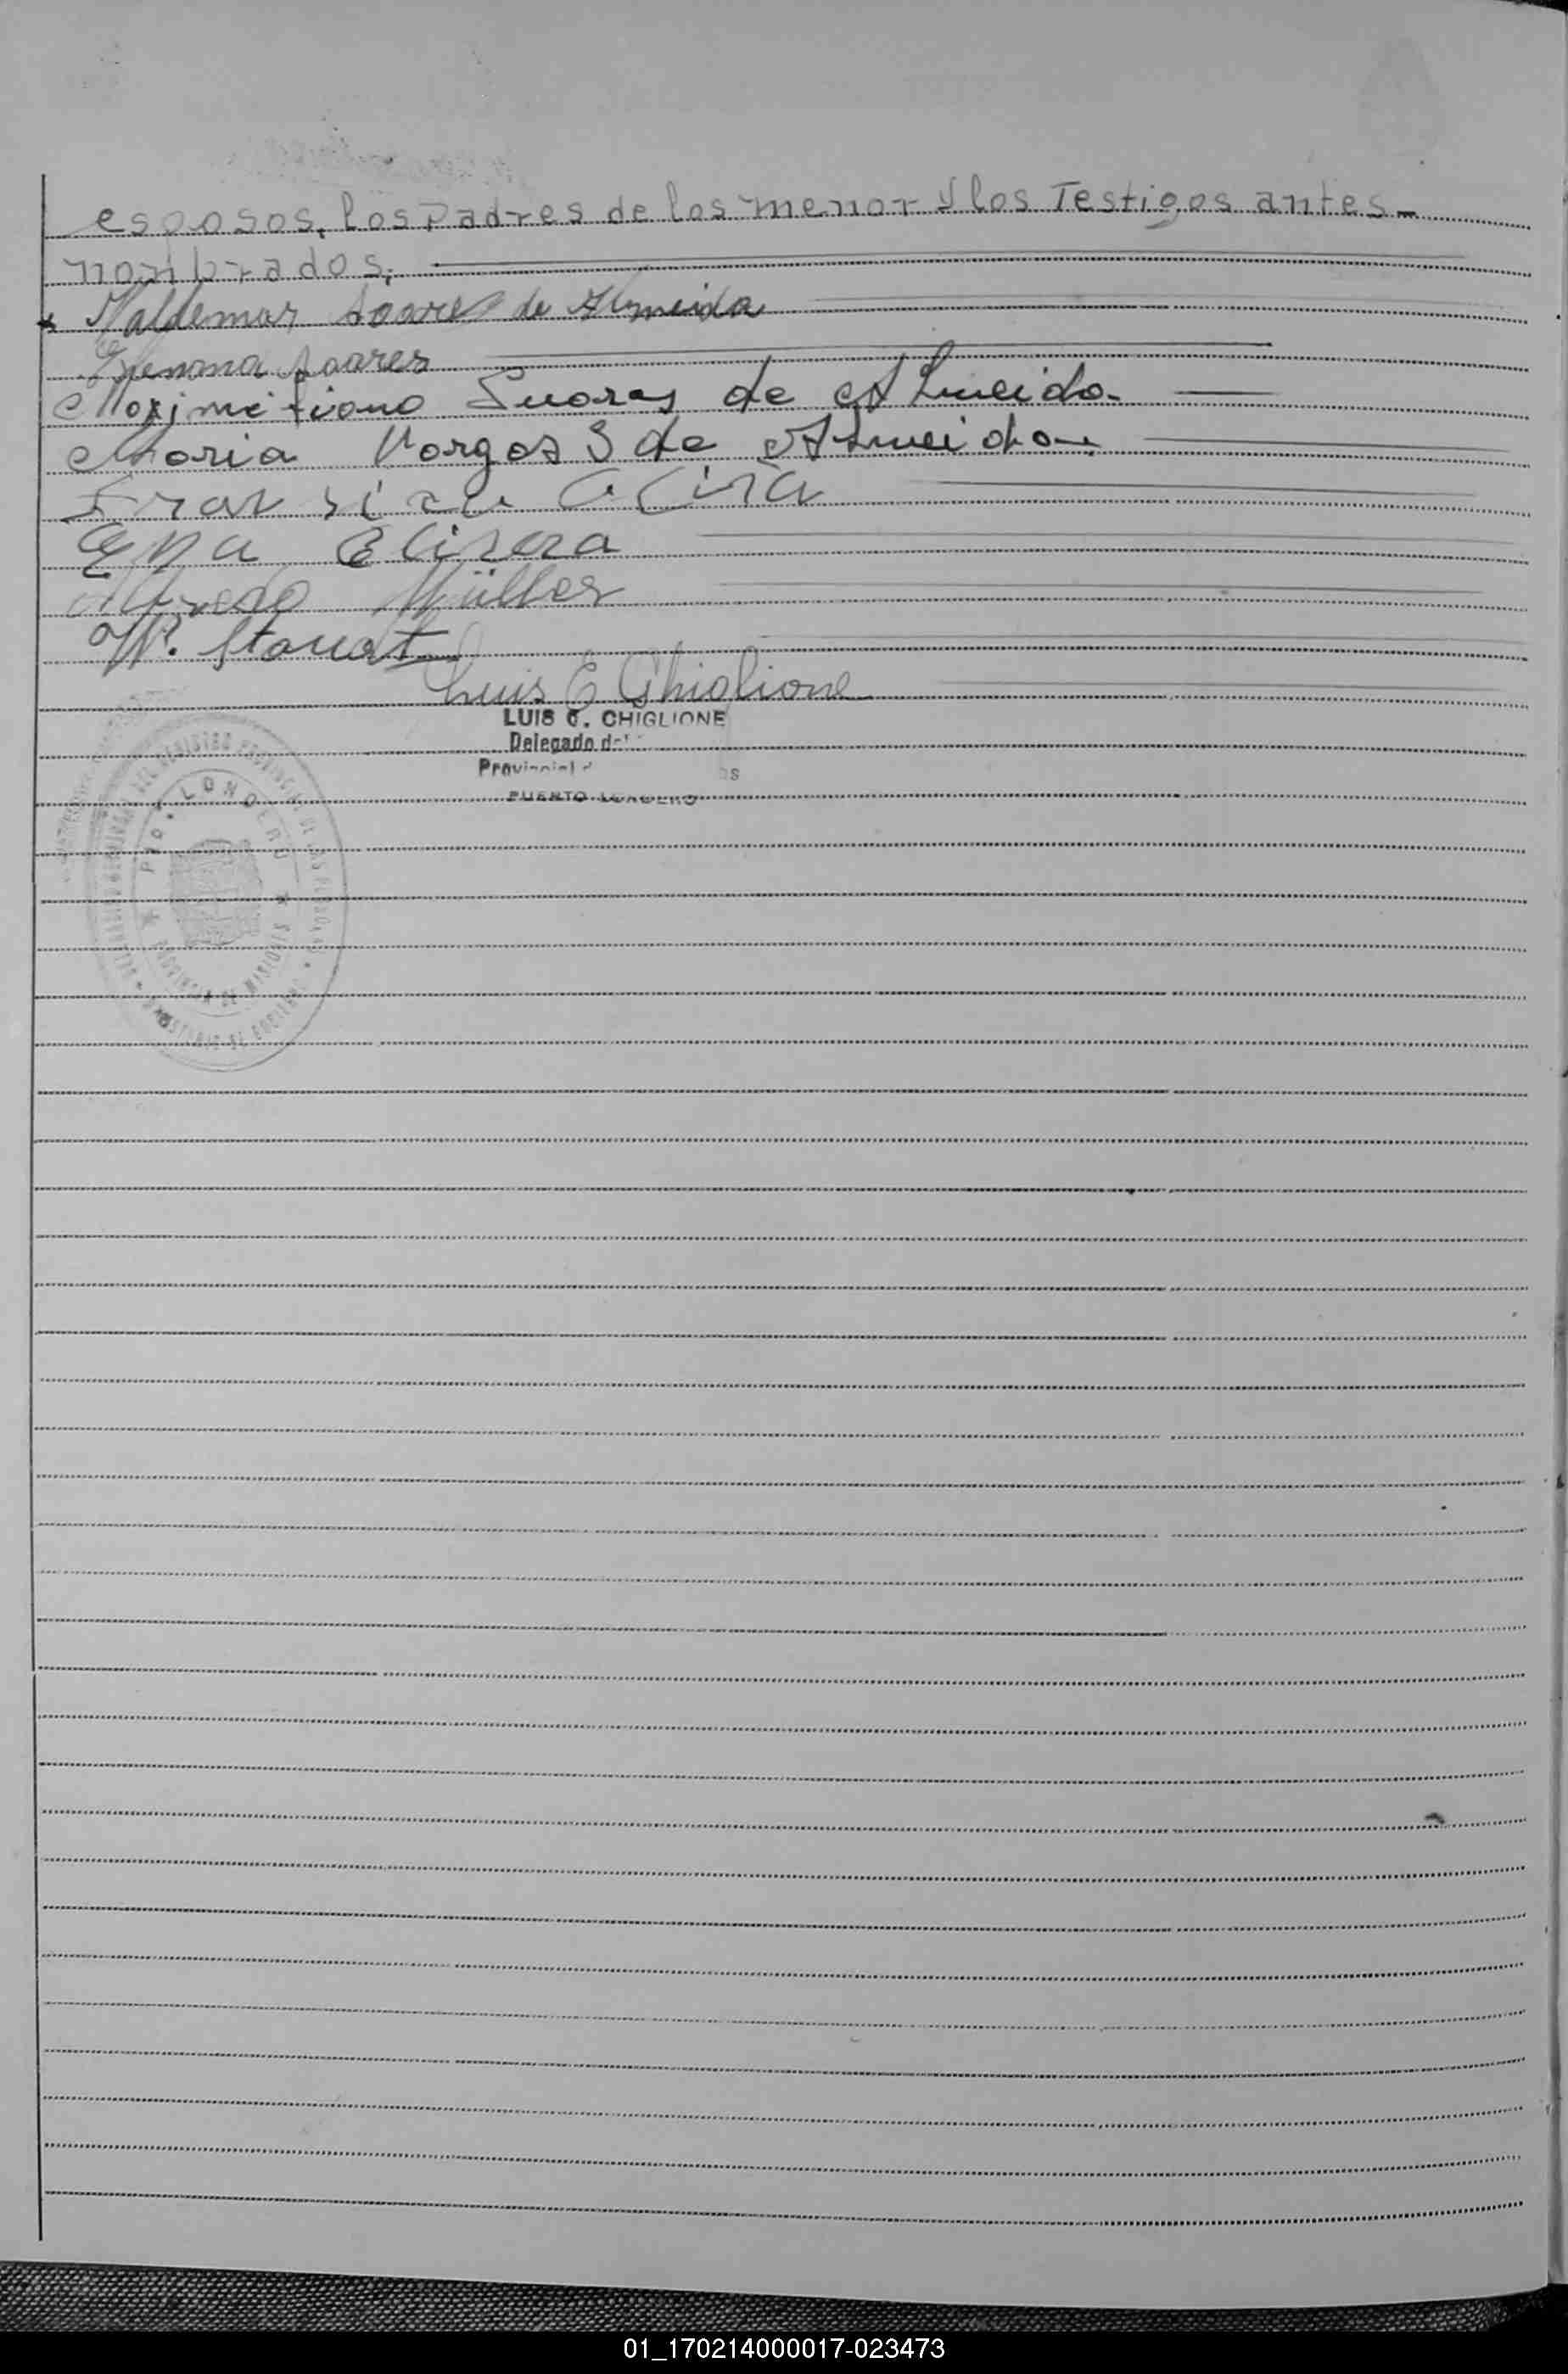 esposos, los Padres de los menor y los Testigos antes-
nombrados.
Valdemar Soares de Almeida
Soares
Maximiliano Suares de Almeida
Maria Vargas S de Almeida
Ema
Alfredo Müller
W. Stauat
Luis E Ghiglione
LUIS E. GHIGLIONE
Delegado del
Provincial
PUERTO LONDERO
PTO. LONDERO
PROVINCIA DE MISIONES
01_170214000017-023473